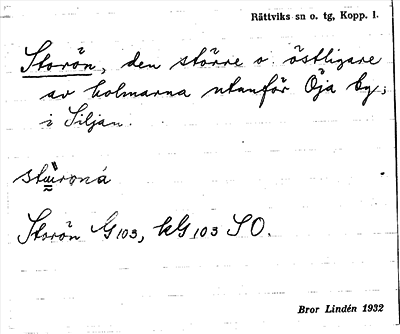 Rättviks sn o. tg, Kopp. l.
Storön, den större o. östligare
av holmarna utanför Öja by,
i Siljan.
Storön G103, kG103 SO.
Bror Lindén 1932